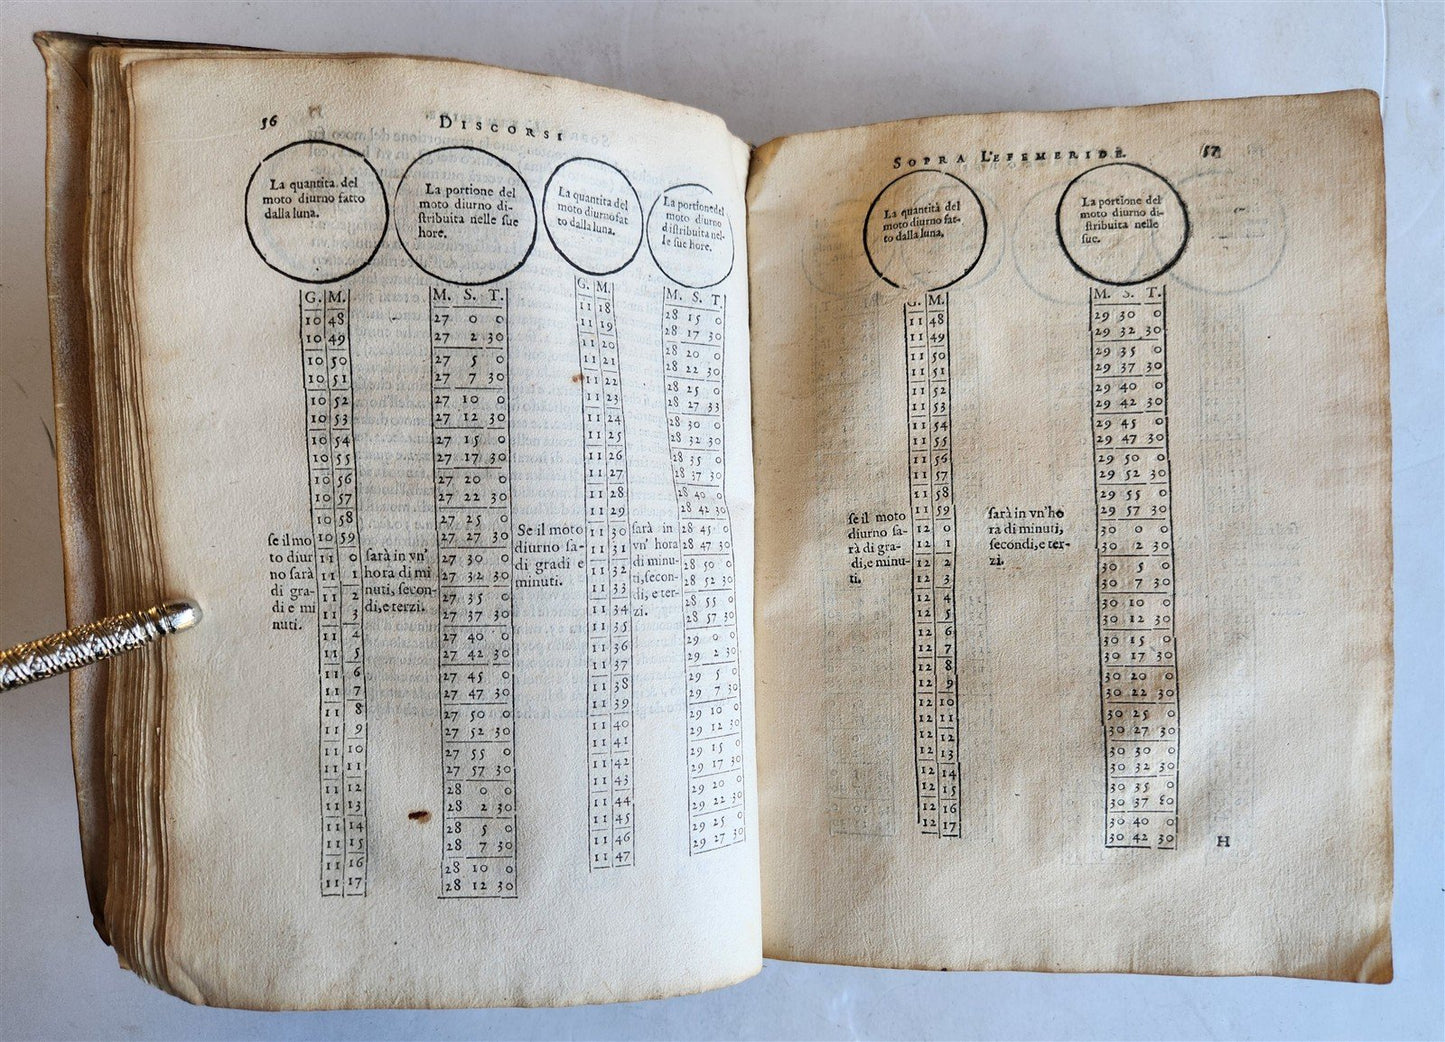 56
DISCORSI
La quantita del
moto diurno fatto
dalla luna.
La portione del
moto diurno di-
stribuita nelle sue
hore.
La quantita del
moto diurno fat
to dalla luna.
La portione del
moto diurno
distribuita nel-
le sue hore.
se il mo
to diur
no sarà
di gra-
di e mi
nuti.
G. M.
10 48
10 49
10 50
10 51
10 52
10 53
10 54
10 55
10 56
10 57
10 58
10 59
11 0
11 1
11 2
11 3
11 4
11 5
11 6
11 7
11 8
11 9
11 10
11 11
11 12
11 13
11 14
11 15
11 16
11 17
sarà in vn'
hora di mi
nuti, secon-
di, e terzi.
M. S. T.
27 0 0
27 2 30
27 5 0
27 7 30
27 10 0
27 12 30
27 15 0
27 17 30
27 20 0
27 22 30
27 25 0
27 27 30
27 30 0
27 32 30
27 35 0
27 37 30
27 40 0
27 42 30
27 45 0
27 47 30
27 50 0
27 52 30
27 55 0
27 57 30
28 0 0
28 2 30
28 5 0
28 7 30
28 10 0
28 12 30
Se il moto
diurno sa-
di gradi e
minuti.
G. M.
11 18
11 19
11 20
11 21
11 22
11 23
11 24
11 25
11 26
11 27
11 28
11 29
11 30
11 31
11 32
11 33
11 34
11 35
11 36
11 37
11 38
11 39
11 40
11 41
11 42
11 43
11 44
11 45
11 46
11 47
sarà in
vn' hora
di minu-
ti, secon-
di, e ter-
zi.
M. S. T.
28 15 0
28 17 30
28 20 0
28 22 30
28 25 0
28 27 33
28 30 0
28 32 30
28 35 0
28 37 30
28 40 0
28 42 30
28 45 0
28 47 30
28 50 0
28 52 30
28 55 0
28 57 30
29 0 0
29 2 30
29 5 0
29 7 30
29 10 0
29 12 30
29 15 0
29 17 30
29 20 0
29 22 30
29 25 0
29 27 30
SOPRA L'EFEMERIDE.
57
La quantità del
moto diurno fat-
to dalla luna.
La portione del
moto diurno di-
stribuita nelle
sue.
se il moto
diurno sa-
rà di gra-
di, e minu-
ti.
G. M.
11 48
11 49
11 50
11 51
11 52
11 53
11 54
11 55
11 56
11 57
11 58
11 59
12 0
12 1
12 2
12 3
12 4
12 5
12 6
12 7
12 8
12 9
12 10
12 11
12 12
12 13
12 14
12 15
12 16
12 17
sarà in vn'ho
rà di minuti,
secondi, e ter-
zi.
M. S. T.
29 30 0
29 32 30
29 35 0
29 37 30
29 40 0
29 42 30
29 45 0
29 47 30
29 50 0
29 52 30
29 55 0
29 57 30
30 0 0
30 2 30
30 5 0
30 7 30
30 10 0
30 12 30
30 15 0
30 17 30
30 20 0
30 22 30
30 25 0
30 27 30
30 30 0
30 32 30
30 35 0
30 37 80
30 40 0
30 42 30
H